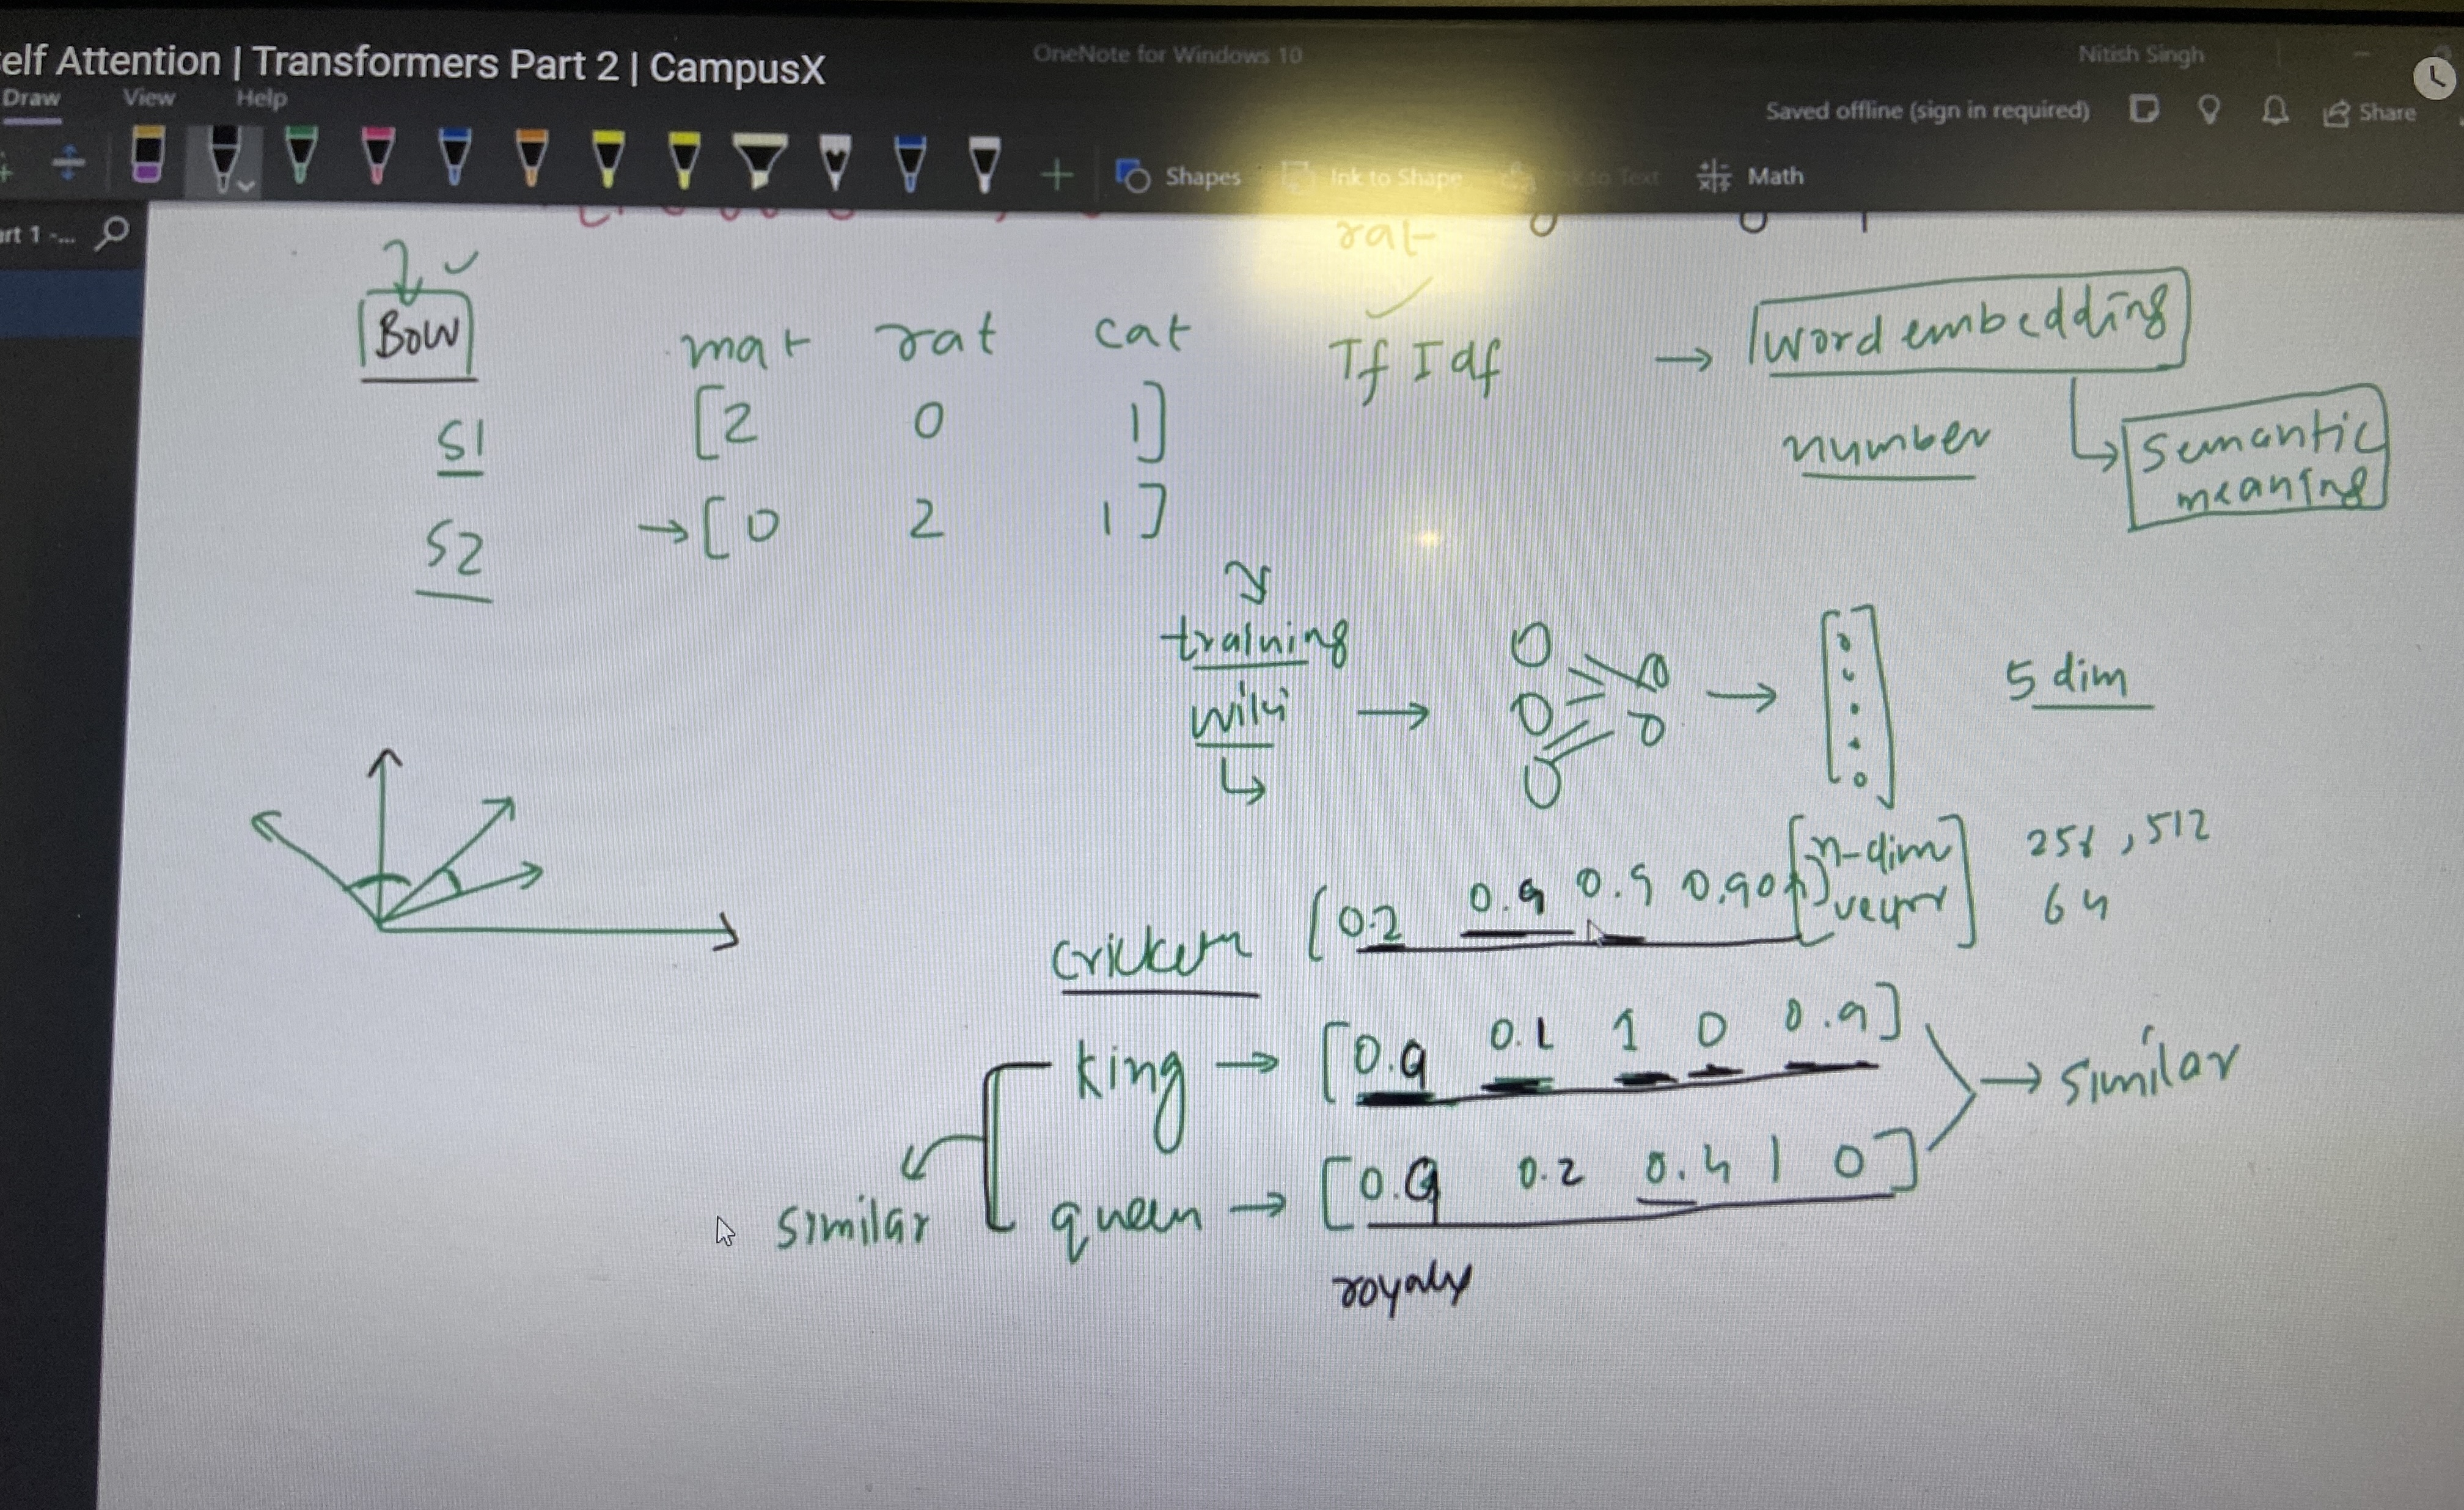 elf Attention | Transformers Part 2 | CampusX
OneNote for Windows 10
Nitish Singh
Draw View Help
Saved offline (sign in required)
Share
Shapes
Ink to Shape
to Text
Math
art 1 -...
rat
BOW
mat rat cat
Tf Idf
→ word embedding
S1
[2 0 1]
number
semantic
meaning
S2
→ [0 2 1]
training
wiki →
→
5 dim
[n-dim
vector]
256, 512
64
[0.2 0.9 0.9 0.90
king → [0.9 0.1 1 0 0.9]
→ similar
queen → [0.9 0.2 0.4 1 0]
similar
royalty